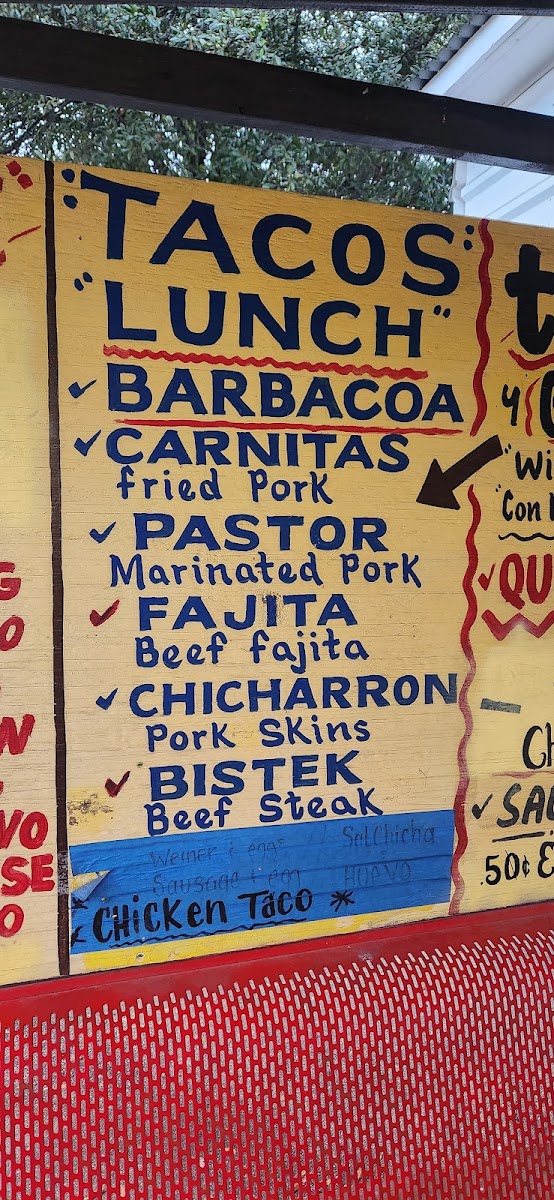 "TACOS"
"LUNCH"
✓ BARBACOA
✓ CARNITAS
fried Pork
✓ PASTOR
Marinated Pork
✓ FAJITA
Beef fajita
✓ CHICHARRON
Pork Skins
✓ BISTEK
Beef Steak
Weiner & eggs / Salchicha
Sausage & egg HUEVO
CHICKEN TACO *
G
O
N
VO
SE
O
t
4
"Wi
"Con
✓ QU
Ch
✓ SA
.50¢ E